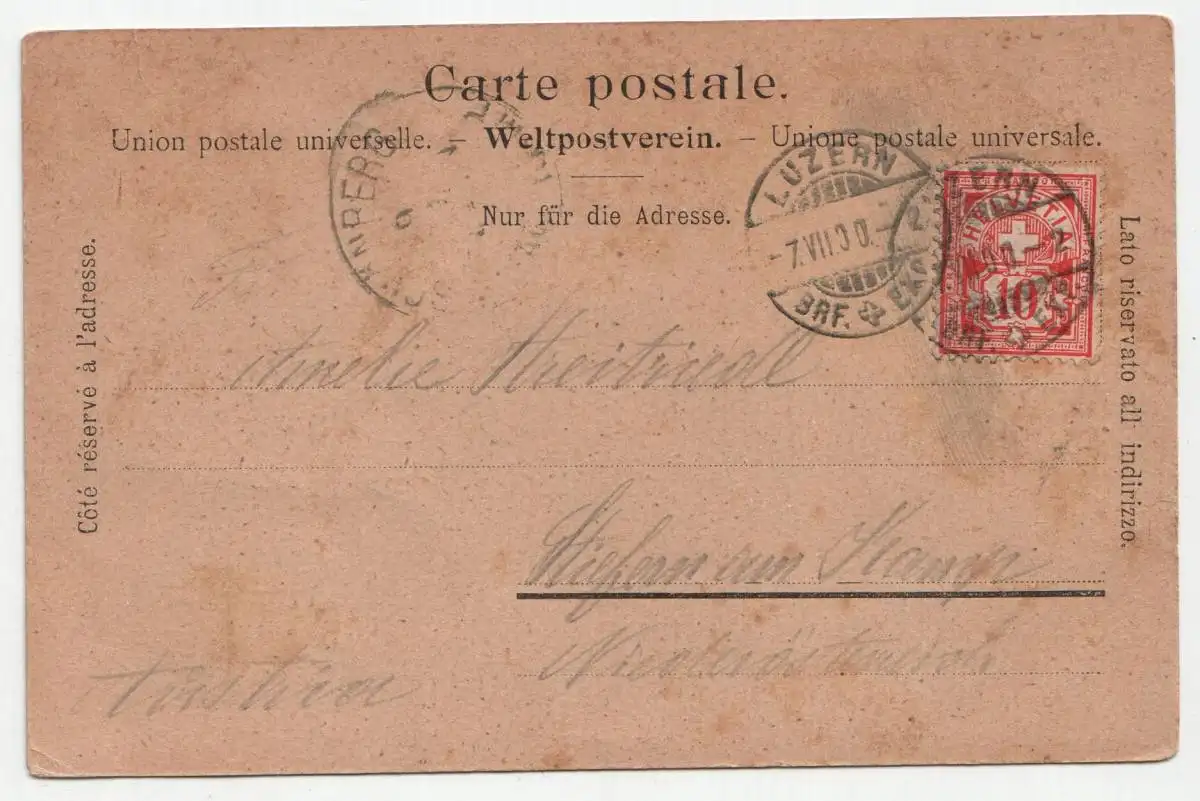 Carte postale.
Union postale universelle. – Weltpostverein. – Unione postale universale.
Nur für die Adresse.
Côté réservé à l'adresse.
Lato riservato all indirizzo.
LUZERN
-7.VII.00.-
BRF.
HELVETIA
10
Amelie
Stiefern am Kamp
Niederösterreich
Austria